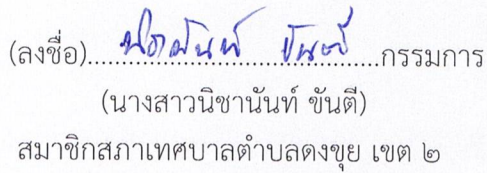 (ลงชื่อ)..........นิชานันท์ ขันตี..........กรรมการ
(นางสาวนิชานันท์ ขันตี)
สมาชิกสภาเทศบาลตำบลดงขุย เขต ๒